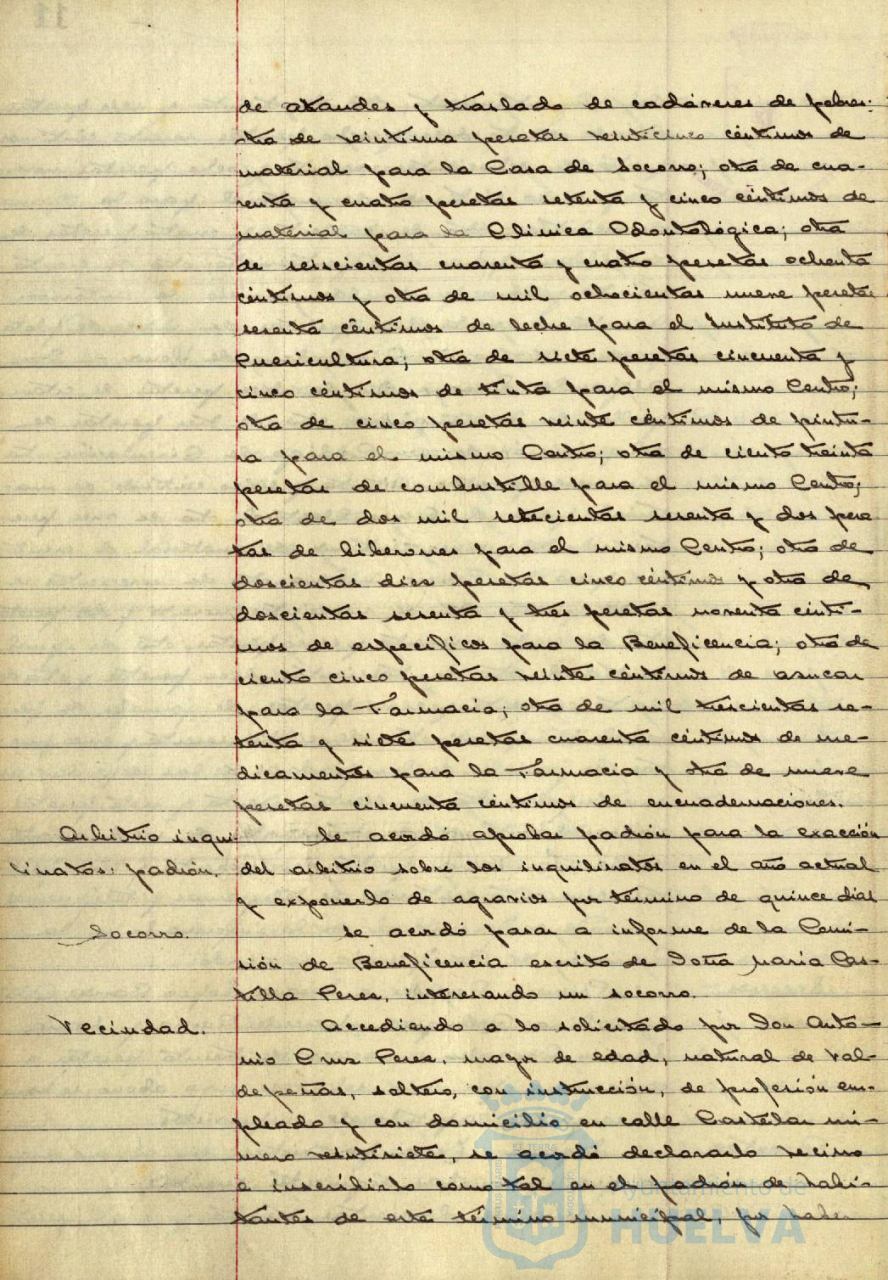 de ataudes y traslado de cadáveres de pobres:
otra de veintiuna pesetas veinticinco céntimos de
material para la Casa de Socorro; otra de cua-
renta y cuatro pesetas setenta y cinco céntimos de
material para la Clinica Odontológica; otra
de seiscientas cuarenta y cuatro pesetas ochenta
céntimos y otra de mil ochocientas nueve pesetas
sesenta céntimos de leche para el Instituto de
Puericultura; otra de siete pesetas cincuenta y
cinco céntimos de tinta para el mismo Centro;
otra de cinco pesetas veinte céntimos de pintu-
ra para el mismo Centro; otra de ciento treinta
pesetas de combustible para el mismo Centro;
otra de dos mil setecientas sesenta y dos pese
tas de biberones para el mismo Centro; otra de
doscientas diez pesetas cinco céntimos y otra de
doscientas sesenta y tres pesetas noventa cénti-
mos de específicos para la Beneficencia; otra de
ciento cinco pesetas veinte céntimos de azucar
para la Farmacia; otra de mil trescientas se-
tenta y siete pesetas cuarenta céntimos de me-
dicamentos para la Farmacia y otra de nueve
pesetas cincuenta céntimos de encuadernaciones.
Arbitrio inqui- Se acordó aprobar padrón para la exacción
linatos: padrón. del arbitrio sobre los inquilinatos en el año actual
y exponerlo de agravios por término de quince dias
Socorro. Se acordó pasar a informe de la Comi-
sión de Beneficencia escrito de Doña María Cas-
tilla Perez, interesando un socorro.
Vecindad. Accediendo a lo solicitado por Don Anto-
nio Cruz Perez, mayor de edad, natural de Val-
depeñas, soltero, con instrucción, de profesión em-
pleado y con domicilio en calle Castelar nú-
mero veintisiete, se acordó declararlo vecino
e inscribirlo como tal en el padrón de habi-
tantes de este término municipal, por haber
Ayuntamiento de
HUELVA